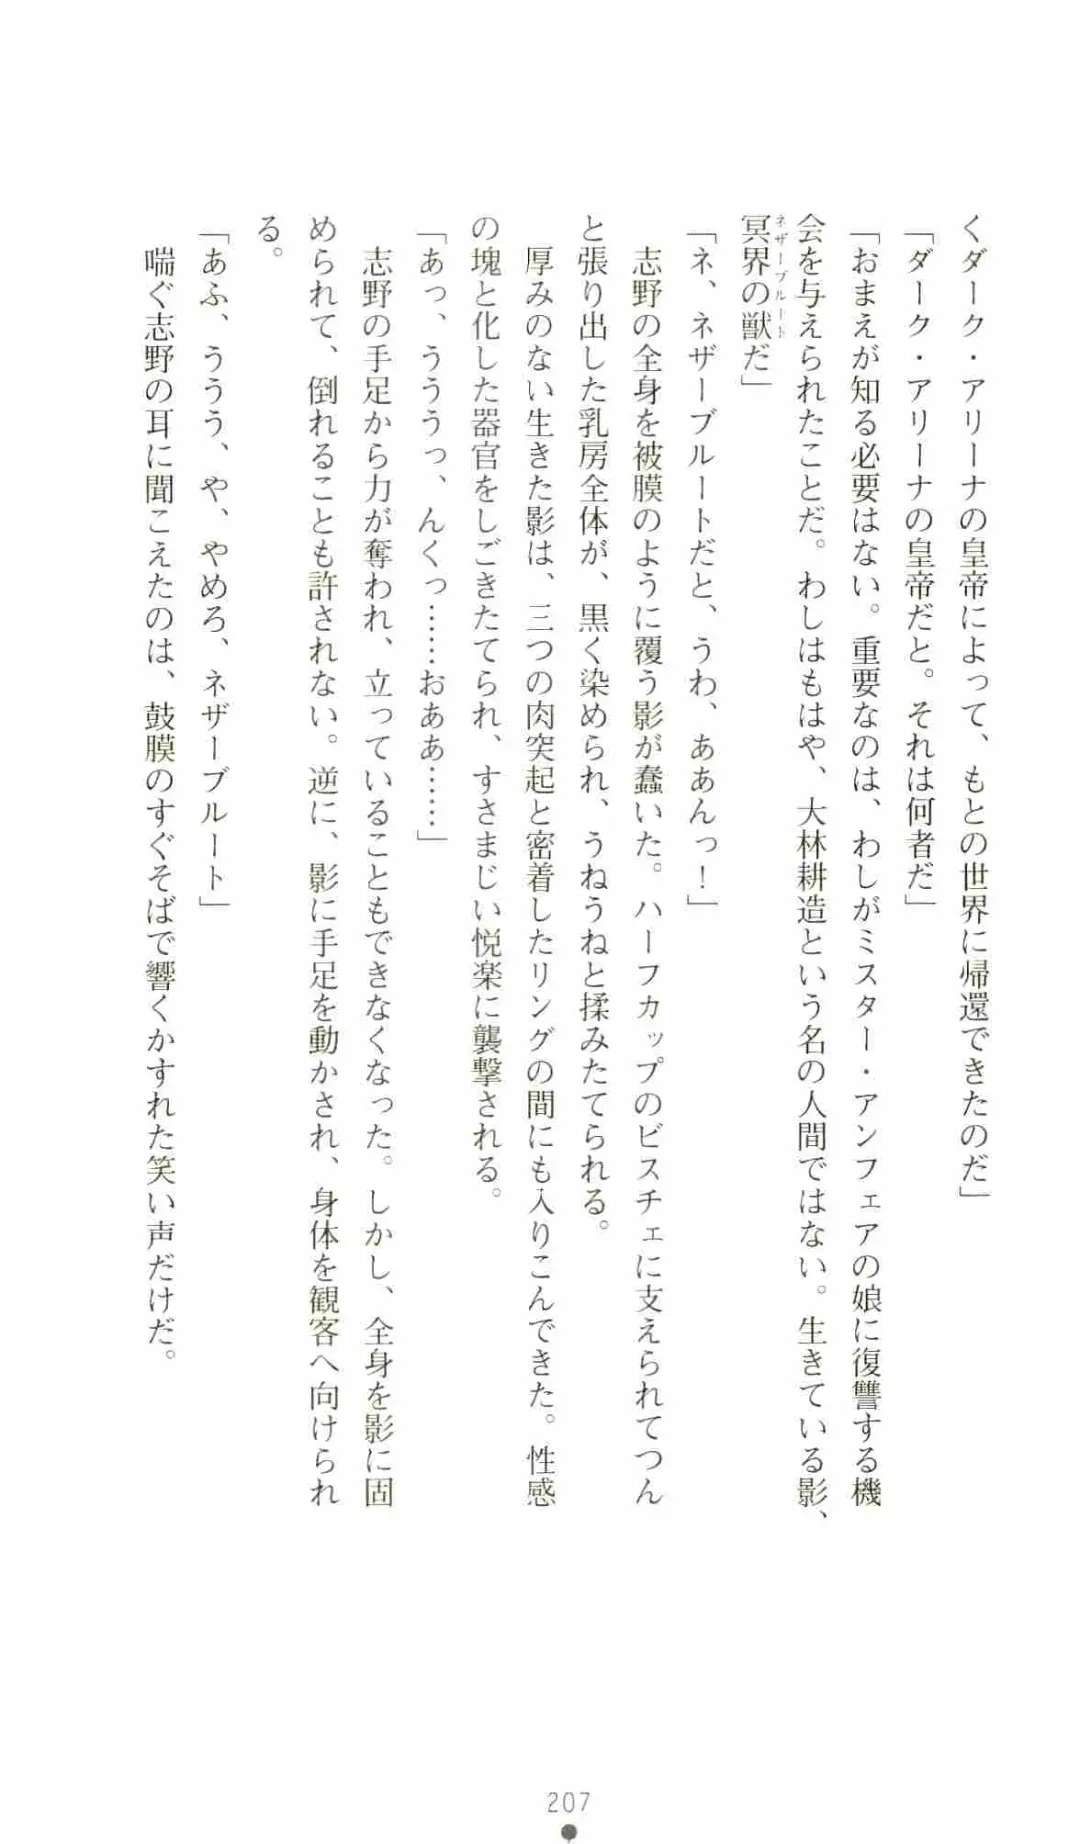 くダーク・アリーナの皇帝によって、もとの世界に帰還できたのだ」
「ダーク・アリーナの皇帝だと。それは何者だ」
「おまえが知る必要はない。重要なのは、わしがミスター・アンフェアの娘に復讐する機
会を与えられたことだ。わしはもはや、大林耕造という名の人間ではない。生きている影、
冥界の獣だ」
ネザーブルート
「ネ、ネザーブルートだと、うわ、ああんっ！」
志野の全身を被膜のように覆う影が蠢いた。ハーフカップのビスチェに支えられてつん
と張り出した乳房全体が、黒く染められ、うねうねと揉みたてられる。
厚みのない生きた影は、三つの肉突起と密着したリングの間にも入りこんできた。性感
の塊と化した器官をしごきたてられ、すさまじい悦楽に襲撃される。
「あっ、うううっ、んくっ……おああ……」
志野の手足から力が奪われ、立っていることもできなくなった。しかし、全身を影に固
められて、倒れることも許されない。逆に、影に手足を動かされ、身体を観客へ向けられ
る。
「あふ、ううう、や、やめろ、ネザーブルート」
喘ぐ志野の耳に聞こえたのは、鼓膜のすぐそばで響くかすれた笑い声だけだ。
207